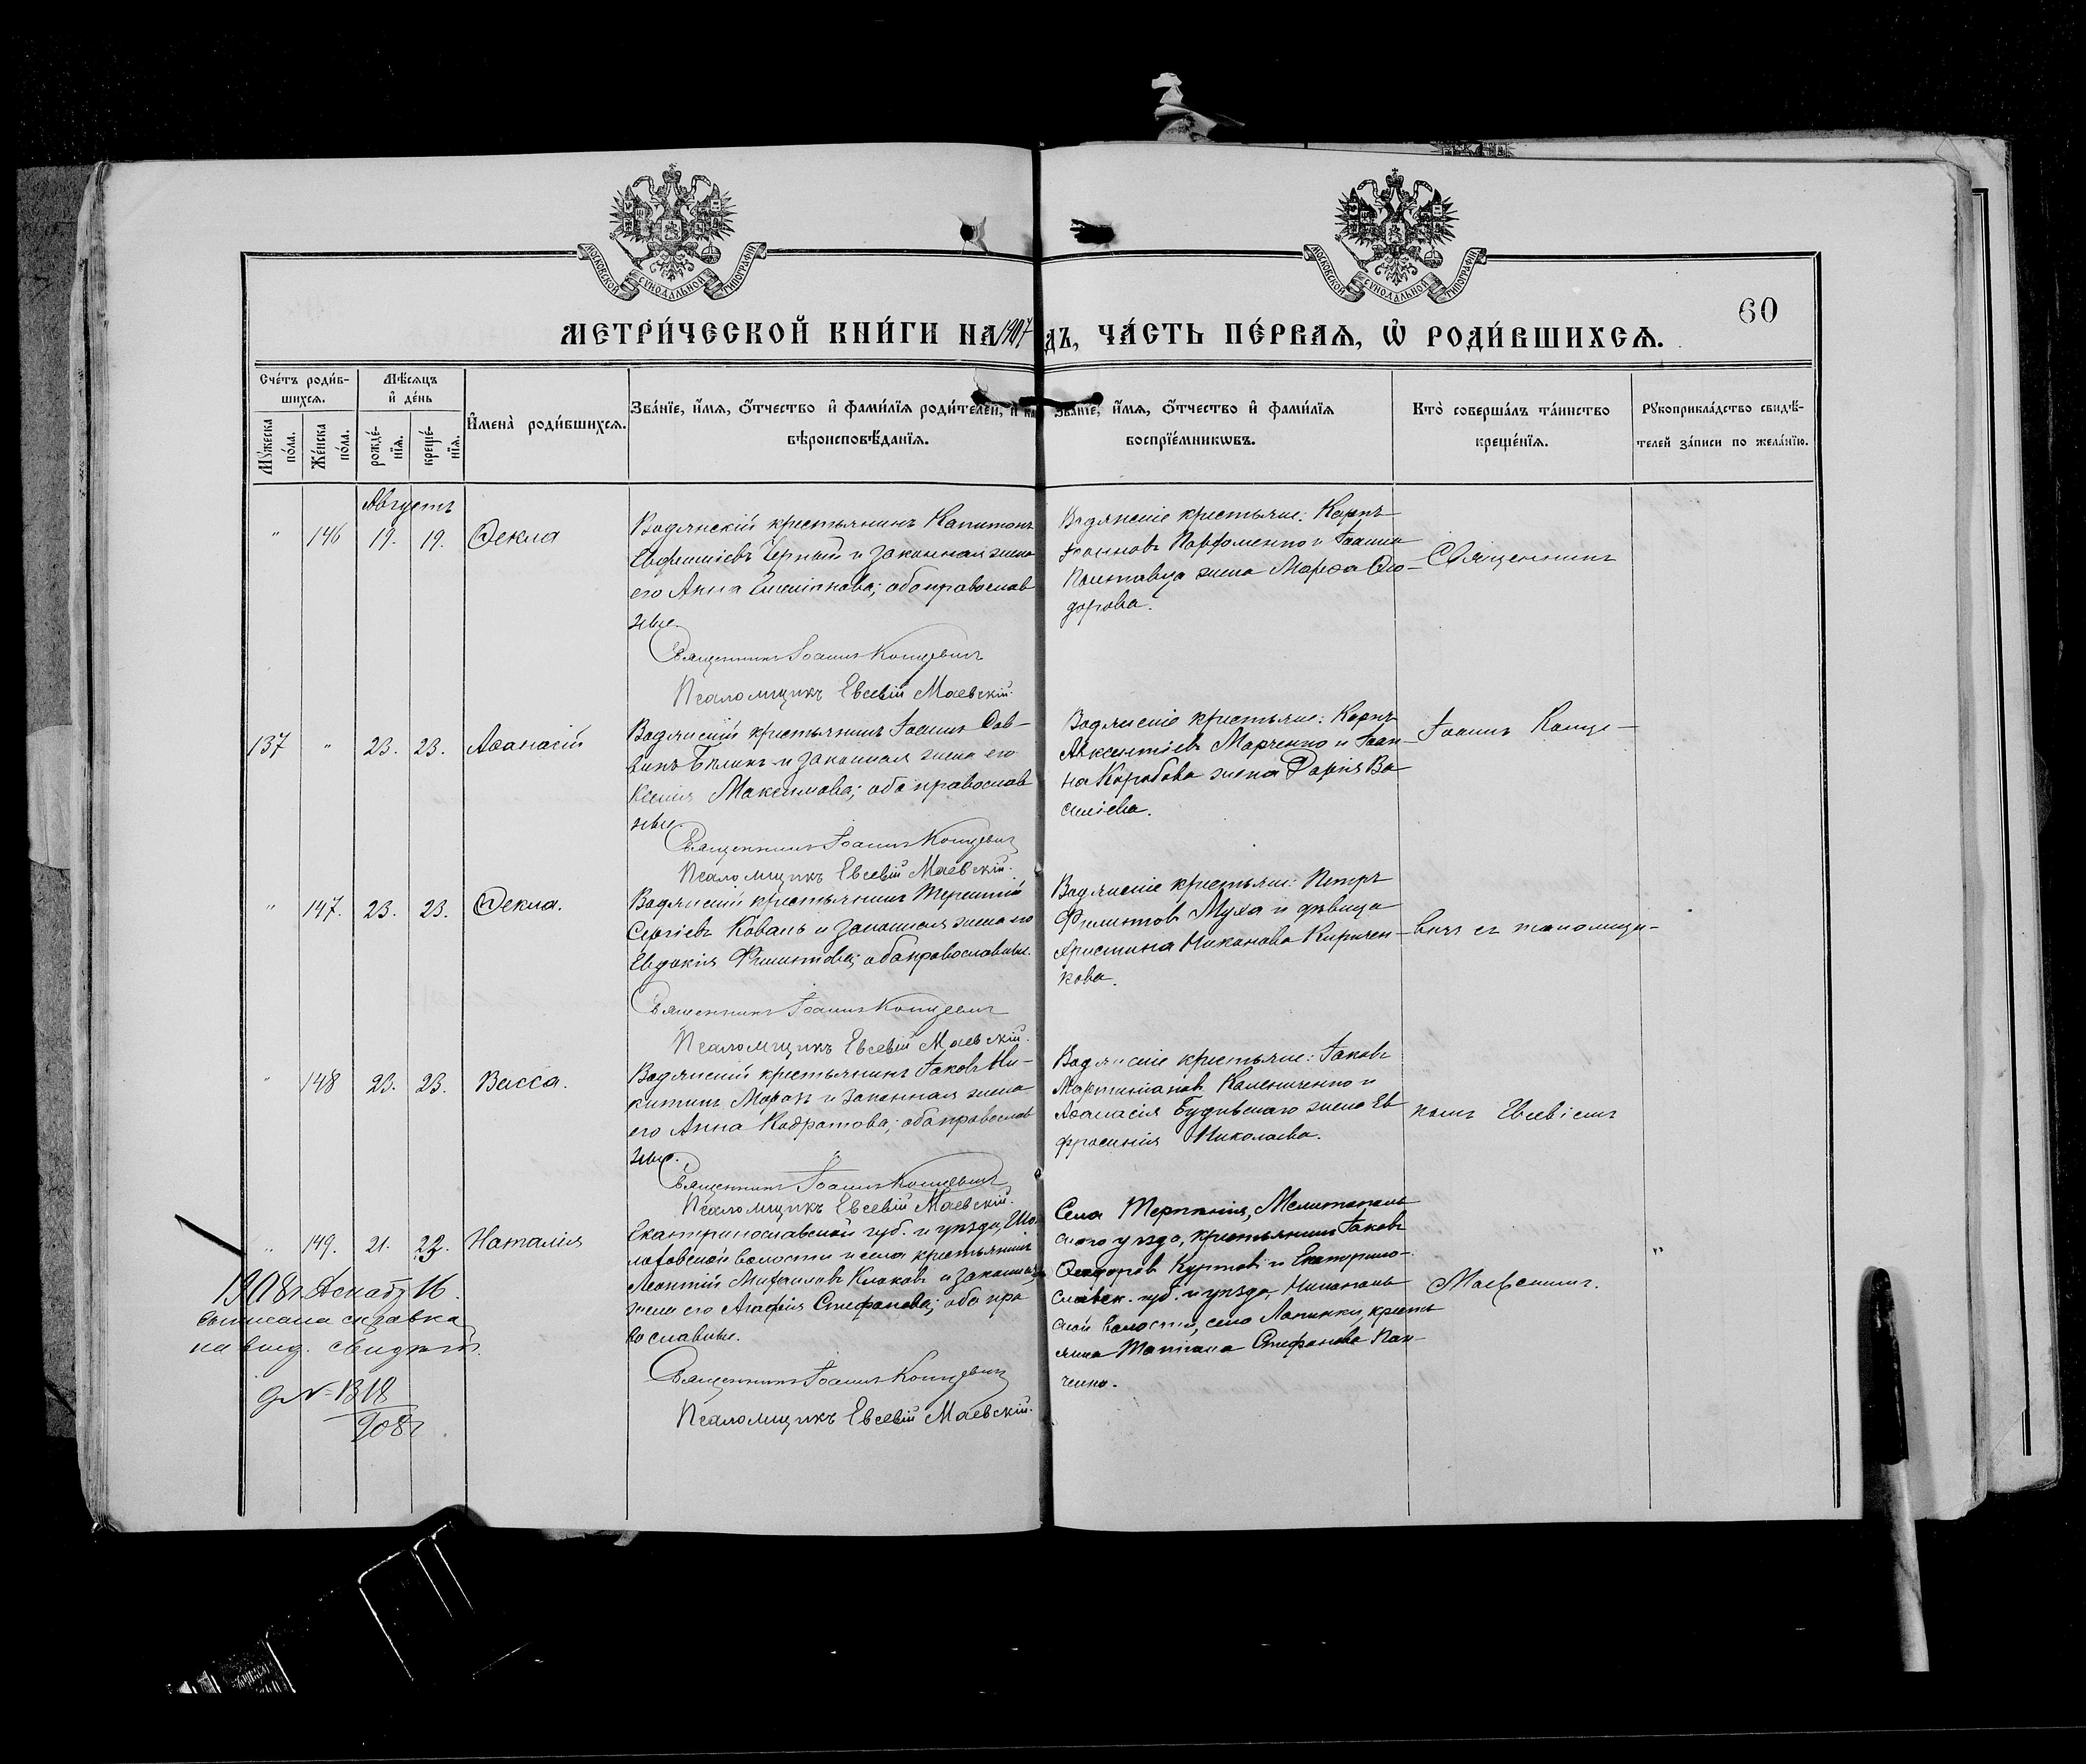 МОСКОВСКОЙ СУНОДАЛЬНОЙ ТИПОГРАФІИ
МОСКОВСКОЙ СУНОДАЛЬНОЙ ТИПОГРАФІИ
60
МЕТРИ́ЧЕСКОЙ КНИ́ГИ НА 1907
ДЪ, ЧА́СТЬ ПЕ́РВАЯ, Ѡ҆ РОДИ́ВШИХСЯ.
Сче́тъ роди́в-
шихся.
Мꙋ́жеска по́ла.
Же́нска по́ла.
Мѣ́сяцъ
и҆ де́нь
рожде́-нїя.
креще́-нїя.
И҆мена̀ роди́вшихся.
Зва́нїе, и҆́мя, ѻ҆́тчество и҆ фами́лїя роди́телей, и҆ ка
вѣроисповѣ́данїя.
Зва́нїе, и҆́мя, ѻ҆́тчество и҆ фами́лїя
воспрїе́мникѡвъ.
Кто̀ соверша́лъ та́инство
креще́нїя.
Рꙋкоприкла́дство свидѣ́-
телей за́писи по жела́нїю.
Августъ
" 146 19. 19. Ѳекла
Водянскій крестьянинъ Капитонъ
Евфиміевъ Черный и законная жена
его Анна Емеліанова; оба православ
ные.
Священникъ Іоаннъ Концевичъ
Псаломщикъ Евсевій Маевскій.
Водянскіе крестьяне: Карпъ
Іоанновъ Парфоменко и Іоанна
Полтавца жена Марѳа Ѳео-
дорова.
Священникъ
137 " 23. 23. Аѳанасій
Водянскій крестьянинъ Іоаннъ Сав-
винъ Бѣликъ и законная жена его
Ксенія Максимова; оба православ
ные.
Священникъ Іоаннъ Концевичъ
Псаломщикъ Евсевій Маевскій.
Водянскіе крестьяне: Карпъ
Авксентіевъ Марченко и Іоан-
на Коробова жена Дарія Ва
силіева.
Іоаннъ Конце-
" 147. 23. 23. Ѳекла.
Водянскій крестьянинъ Терентій
Сергіевъ Коваль и законная жена его
Евдокія Филиппова; оба православные.
Священникъ Іоаннъ Концевичъ
Псаломщикъ Евсевій Маевскій.
Водянскіе крестьяне: Петръ
Филипповъ Муха и дѣвица
Христина Никанова Киричен-
кова.
вичъ съ псаломщи-
" 148 23. 23. Васса.
Водянскій крестьянинъ Іаковъ Ни-
китинъ Морозъ и законная жена
его Анна Кодратова; оба православ
ные.
Священникъ Іоаннъ Концевичъ
Псаломщикъ Евсевій Маевскій.
Водянскіе крестьяне: Іаковъ
Мартиніановъ Калениченко и
Аѳанасія Будивскаго жена Ев
фросинія Николаева.
комъ Евсевіемъ
" 149. 21. 23. Наталія
Екатеринославской губ. и уѣзда,
волости и села крестьянинъ
Леонтій Михаиловъ Клоковъ и законная
жена его Агафія Стефанова; оба пра
вославные.
Священникъ Іоаннъ Концевичъ
Псаломщикъ Евсевій Маевскій.
Села Терпѣнія, Мелитополь
скаго уѣзда, крестьянинъ Іаковъ
Ѳеодоровъ Куртовъ и Екатерино-
славск. губ. и уѣзда,
ской волости, села крестъ
янка Татіана Стефанова Пан-
ченко.
Маевскимъ.
"
1908 г. Декабр. 16.
выписана справка
на
№ 1318
908 г.